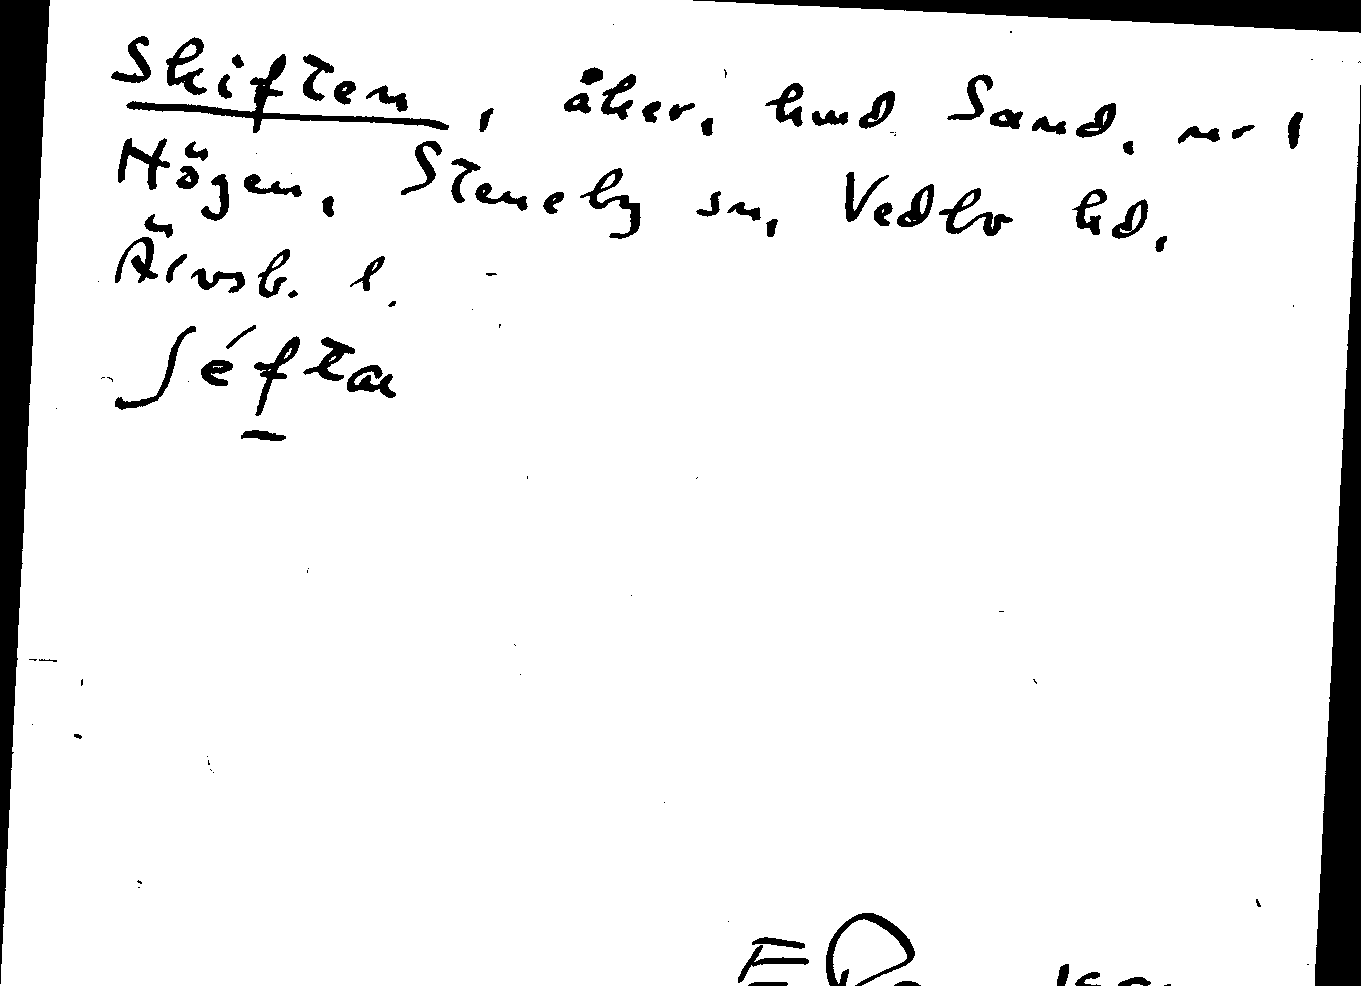 Skiften, åker, hmd Sand, nr 1
Högen, Steneby sn, Vedbo hd,
Älvsb. l.
ʃéftan